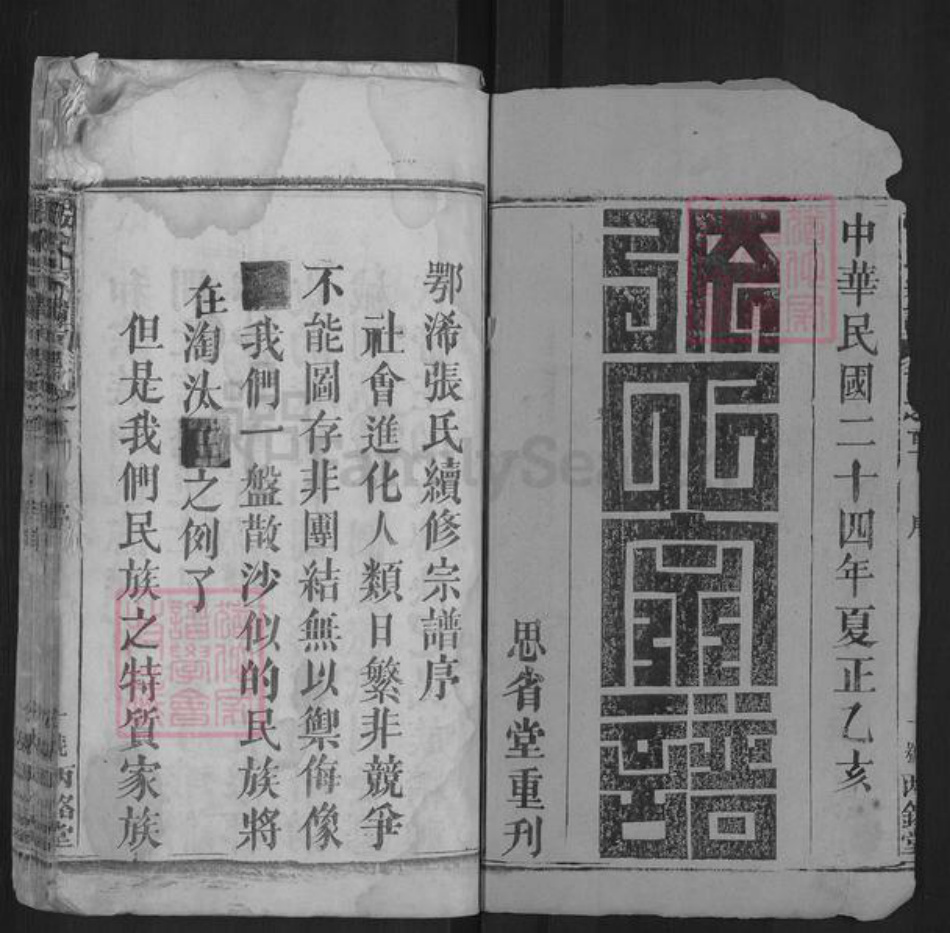 中華民國二十四年夏正乙亥
張氏宗譜
思省堂重刋
鄂浠張氏續修宗譜序
社會進化人類日繁非競爭
不能圖存非團結無以禦侮像
我們一盤散沙似的民族將
在淘汰之例了
但是我們民族之特質家族